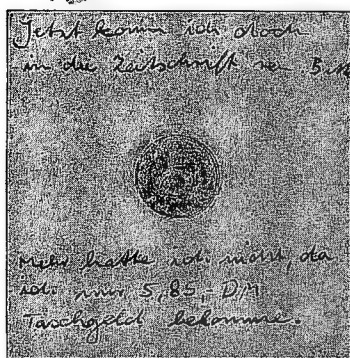 Jetzt komm ich doch
in die Zeitschrift
Mehr hatte ich nicht, da
ich nur 5,85,- DM
Taschgeld bekomme.